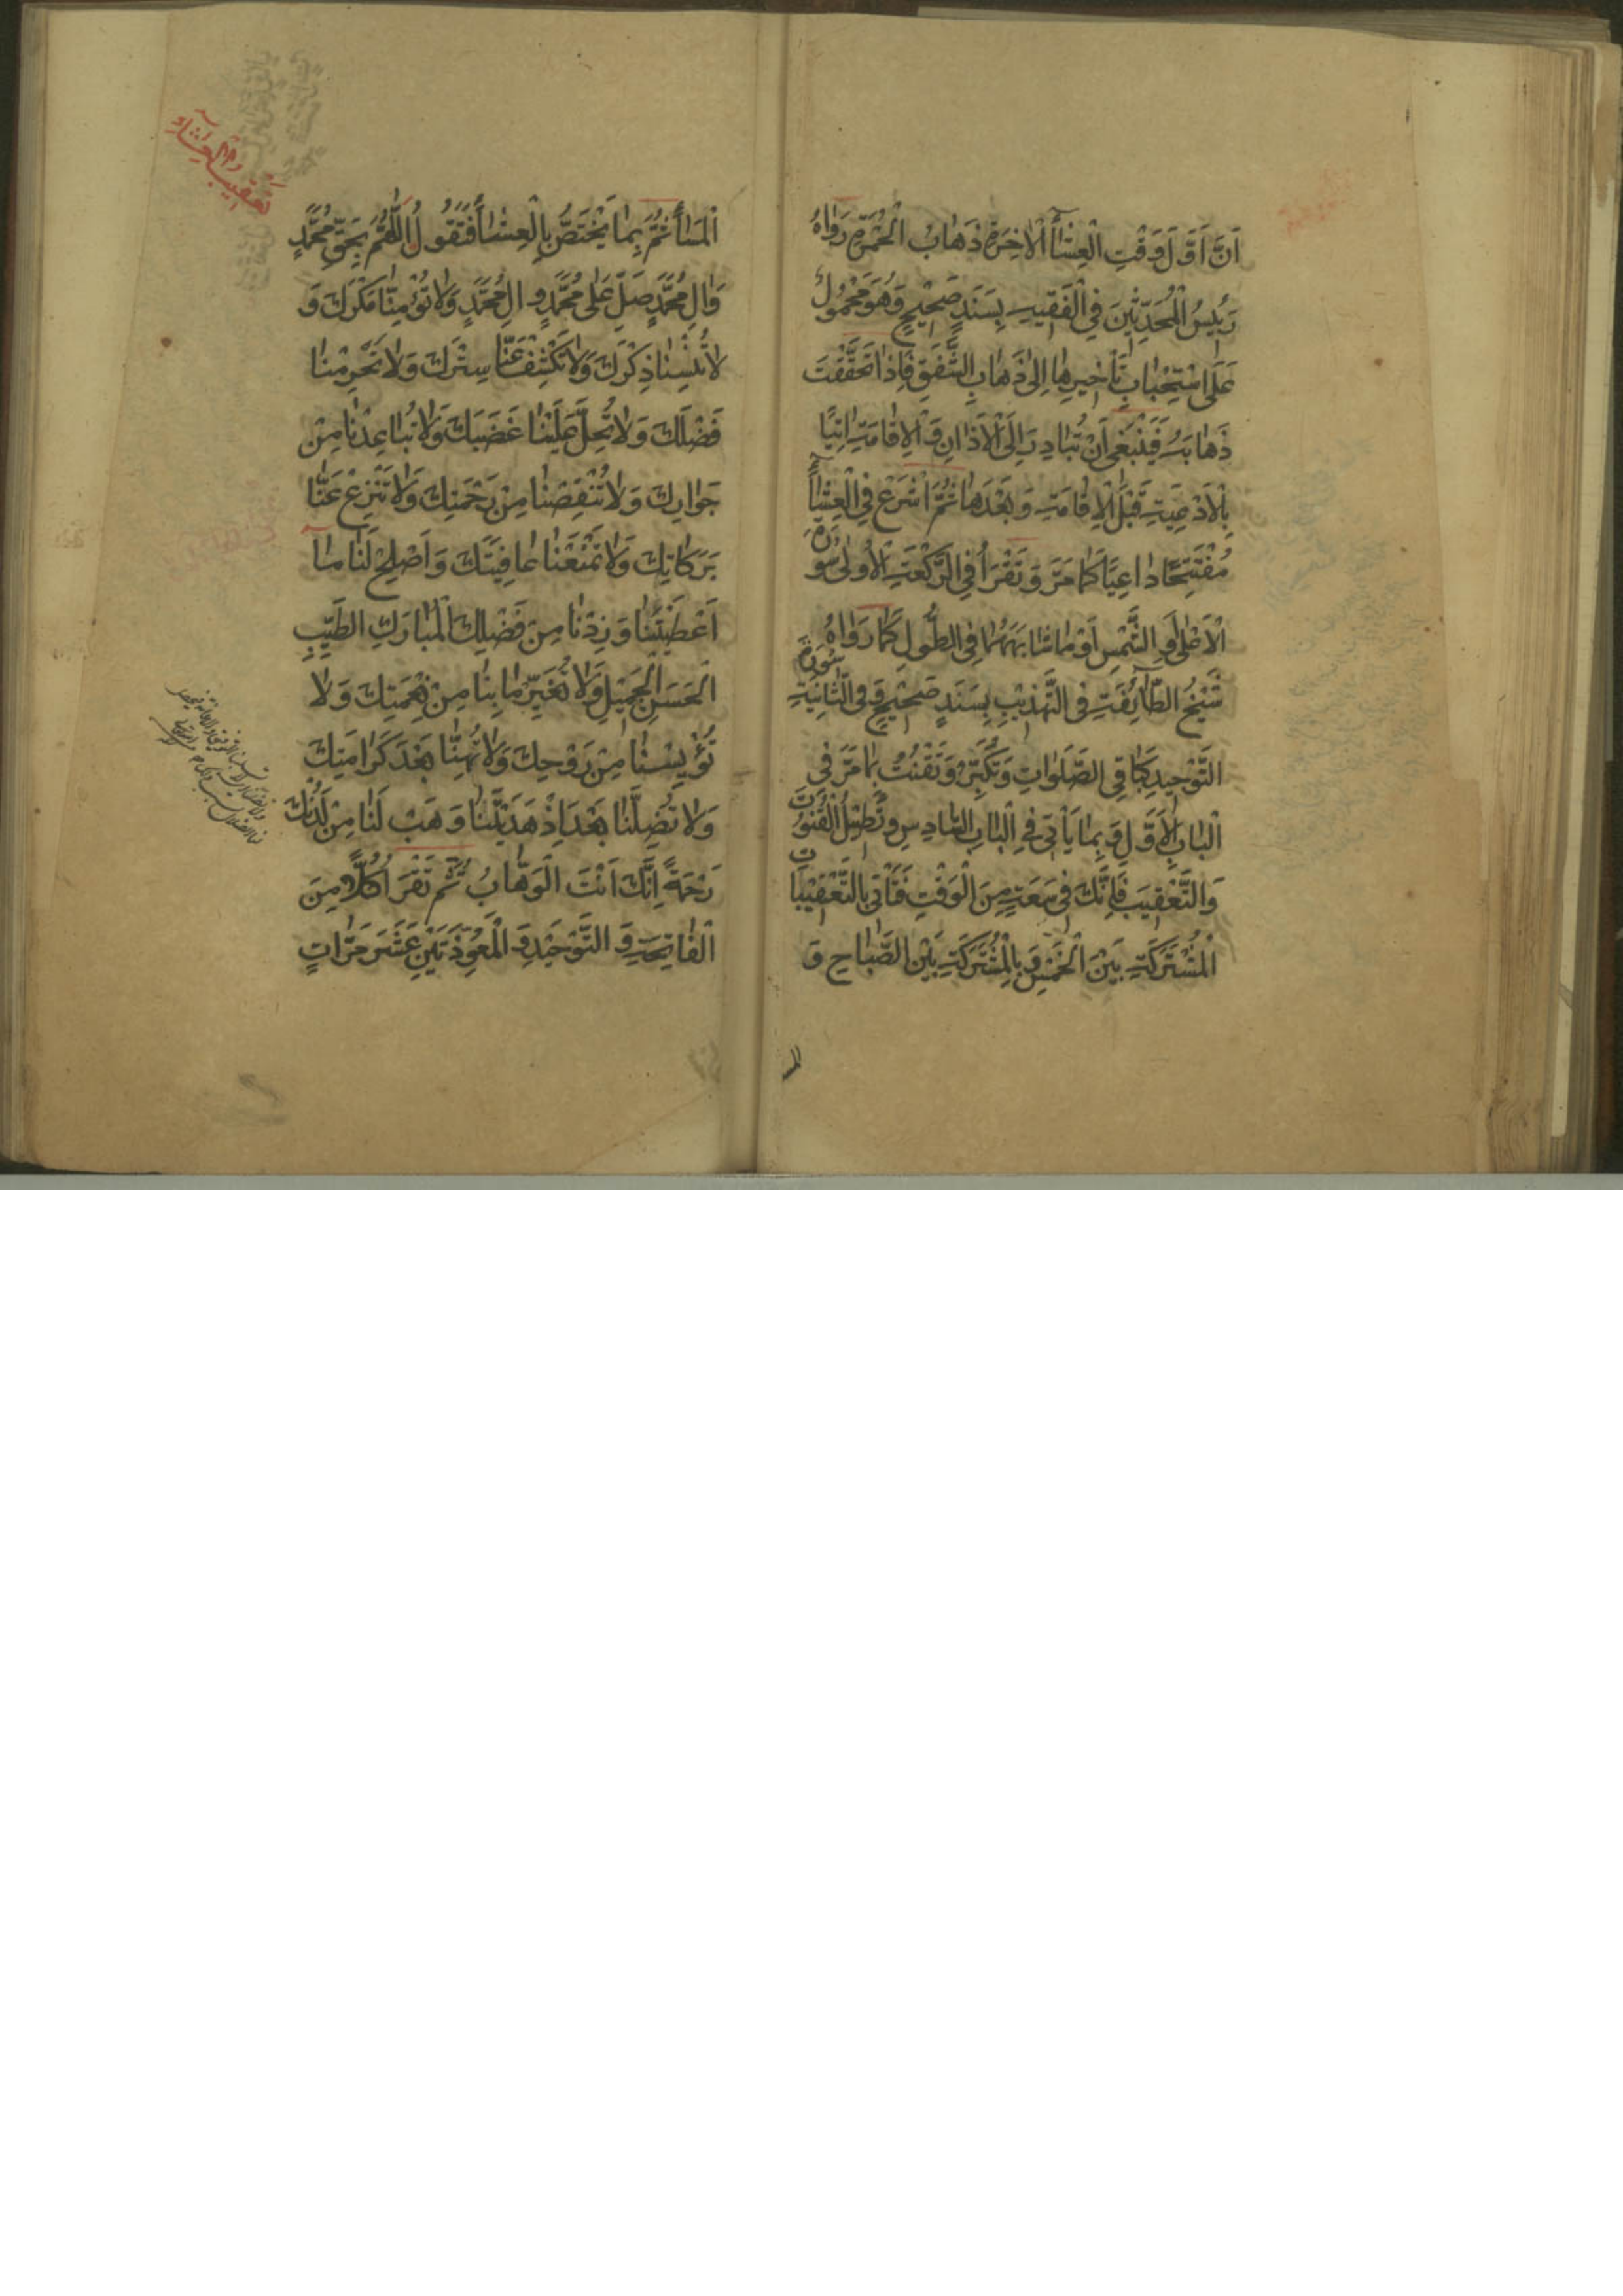 اَنَّ اَوَّلَ وَقْتِ الْعِشٰاۤءِ الْاٰخِرَةِ ذَهٰابُ الْحُمْرَةِ رَوٰاهُ
رَئيسُ الْمُحَدِّثينَ فِي الْفَقيهِ بِسَنَدٍ صَحيحٍ وَهُوَ مَحْمُولٌ
عَلَى اسْتِحْبٰابِ تَأْخيرِهٰا اِلىٰ ذَهٰابِ الشَّفَقِ فَاِذٰا تَحَقَّقْتَ
ذَهٰابَهُ فَيَنْبَغي اَنْ تُبٰادِرَ اِلَى الْاَذٰانِ وَ الْاِقٰامَةِ اٰتِيًا
بِالْاَدْعِيَةِ قَبْلَ الْاِقٰامَةِ وَ بَعْدَهٰا ثُمَّ اشْرَعْ فِي الْعِشٰاۤءِ
مُفْتَتِحًا دٰاعِيًا كَمٰا مَرَّ وَ تَقْرَأُ فِي الرَّكْعَةِ الْاُولىٰ سُورَةَ
الْاَعْلىٰ اَوِ الشَّمْسِ اَوْ مٰا شٰابَهَهُمٰا فِي الطُّولِ كَمٰا رَوٰاهُ
شَيْخُ الطّٰاۤئِفَةِ فِي التَّهْذيبِ بِسَنَدٍ صَحيحٍ وَ فِي الثّٰانِيَةِ سُورَةَ
التَّوْحيدِ كَبٰاقِي الصَّلَوٰاتِ وَ تُكَبِّرُ وَ تَقْنُتُ بِمٰا مَرَّ فِي
الْبٰابِ الْاَوَّلِ وَ بِمٰا يَأْتي فِي الْبٰابِ السّٰادِسِ وَ تُطيلُ الْقُنُوتَ
وَ التَّعْقيبَ فَاِنَّكَ في سَعَةٍ مِنَ الْوَقْتِ فَتَأْتي بِالتَّعْقيبٰاتِ
الْمُشْتَرَكَةِ بَيْنَ الْخَمْسِ وَ بِالْمُشْتَرَكَةِ بَيْنَ الصَّبٰاحِ وَ
المسا
تعقيب العشاء
الْمَسٰاۤءِ ثُمَّ بِمٰا يَخْتَصُّ بِالْعِشٰاۤءِ فَتَقُولُ اَللّٰهُمَّ بِحَقِّ مُحَمَّدٍ
وَ اٰلِ مُحَمَّدٍ صَلِّ عَلىٰ مُحَمَّدٍ وَ اٰلِ مُحَمَّدٍ وَ لٰا تُؤْمِنّٰا مَكْرَكَ وَ
لٰا تُنْسِنٰا ذِكْرَكَ وَ لٰا تَكْشِفْ عَنّٰا سِتْرَكَ وَ لٰا تَحْرِمْنٰا
فَضْلَكَ وَ لٰا تُحِلَّ عَلَيْنٰا غَضَبَكَ وَ لٰا تُبٰاعِدْنٰا مِنْ
جَوٰارِكَ وَ لٰا تُنْقِصْنٰا مِنْ رَحْمَتِكَ وَ لٰا تَنْزِعْ عَنّٰا
بَرَكٰاتِكَ وَ لٰا تَمْنَعْنٰا عٰافِيَتَكَ وَ اَصْلِحْ لَنٰا مٰا
اَعْطَيْتَنٰا وَ زِدْنٰا مِنْ فَضْلِكَ الْمُبٰارَكِ الطَّيِّبِ
الْحَسَنِ الْجَميلِ وَ لٰا تُغَيِّرْ مٰا بِنٰا مِنْ نِعْمَتِكَ وَ لٰا
تُؤْيِسْنٰا مِنْ رَوْحِكَ وَ لٰا تُهِنّٰا بَعْدَ كَرٰامَتِكَ
وَ لٰا تُضِلَّنٰا بَعْدَ اِذْ هَدَيْتَنٰا وَ هَبْ لَنٰا مِنْ لَدُنْكَ
رَحْمَةً اِنَّكَ اَنْتَ الْوَهّٰابُ ثُمَّ تَقْرَأُ كُلًّا مِنَ
الْفٰاتِحَةِ وَ التَّوْحيدِ وَ الْمُعَوِّذَتَيْنِ عَشَرَ مَرّٰاتٍ